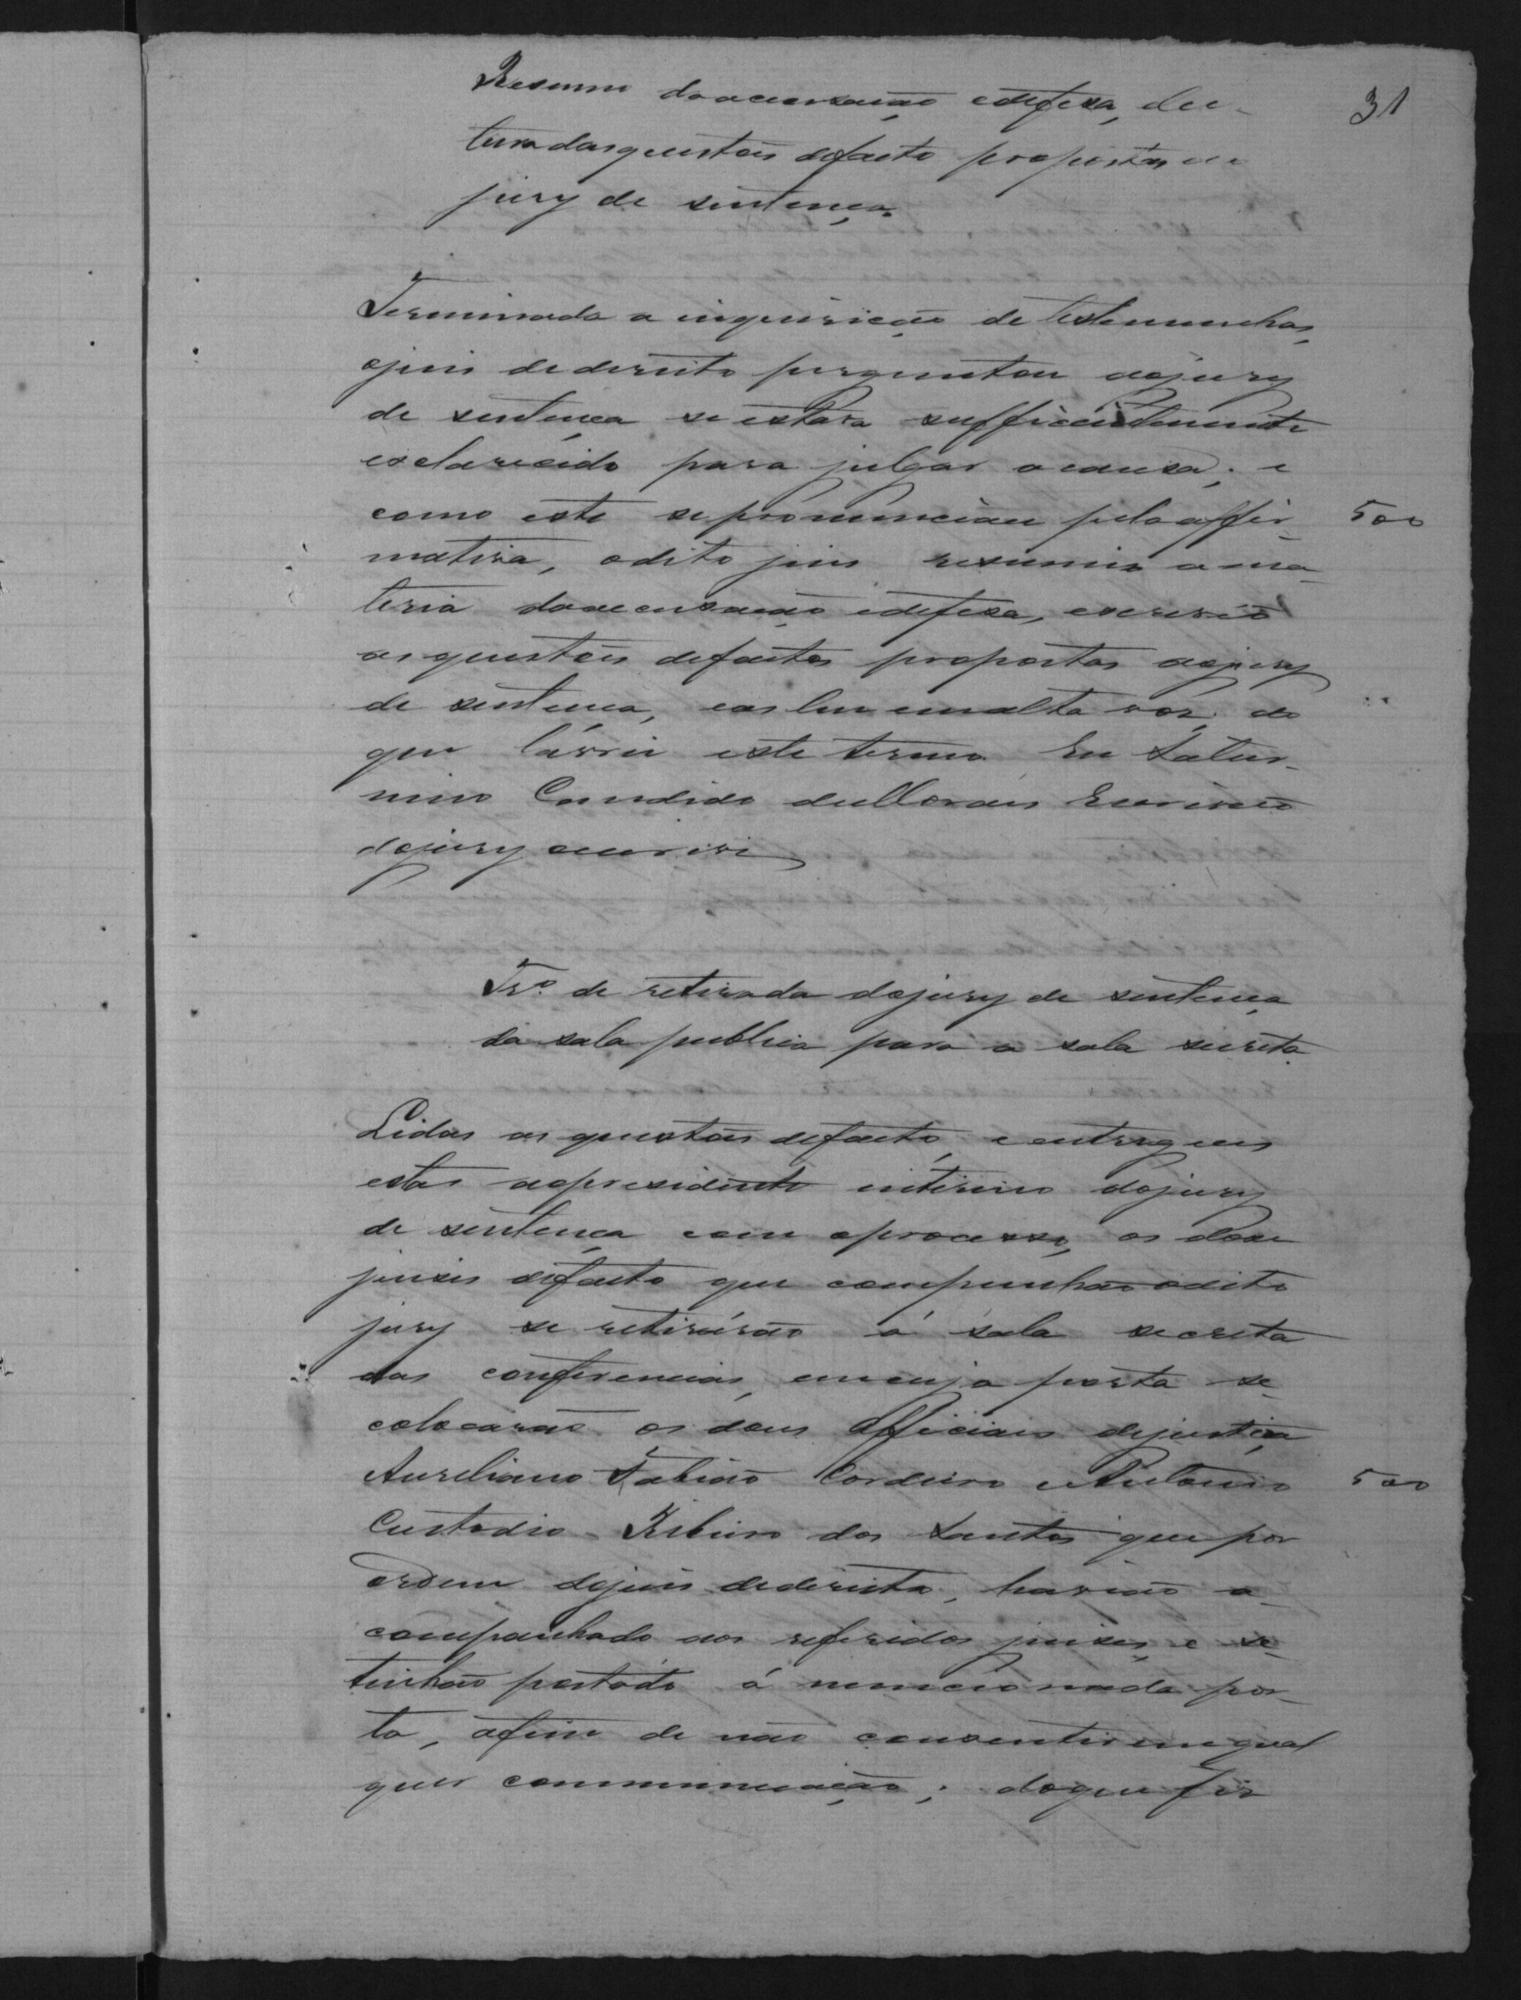 31
Resumo da accusação e defeza, lei-
tura das questões de facto propostas ao
jury de sentença.
Terminada a inquirição de testemunhas,
o juis de direito perguntou ao jury
de sentença se estava sufficientemente
esclarecido para julgar a causa; e
como este se pronunciou pela affir-
500
mativa, o dito juis resumio a ma-
teria da accusação e defeza, escreveo
as questões de factos propostas ao jury
de sentença, e as leu em alta vóz, do
que lávrei este termo. Eu Satur-
nino Candido de Moraes Escrivão
do jury escrivi
Tr.º de retirada do jury de sentença
da sala publica para a sala secreta
Lidas as questões de facto, e entregues
estas ao presidente interino do jury
de sentença com o processo, os doze
juises de facto que compunhão o dito
jury se retirárão á sala secreta
das conferencias, em cuja porta se
colocarão os dous Officiais de justiça
Aureliano Fabião Cordeiro e Antonio
500
Custodio Ribeiro dos Santos que por
ordem do juis de direito, havião a-
companhado aos referidos juises e se
tinhão postado á mencionada por-
ta, afim de não consentirem qual
quer communicação; do que fis